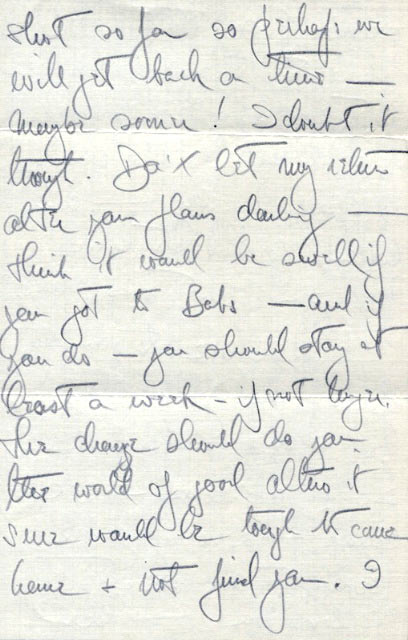 shot so far so perhaps we
will get back on time —
maybe sooner! I doubt it
though. Don't let my return
alter your plans darling —
think it would be swell if
you got to Bebs — and if
you do — you should stay at
least a week – if not longer.
The change should do you
the world of good altho it
sure would be tough to come
home + not find you. I